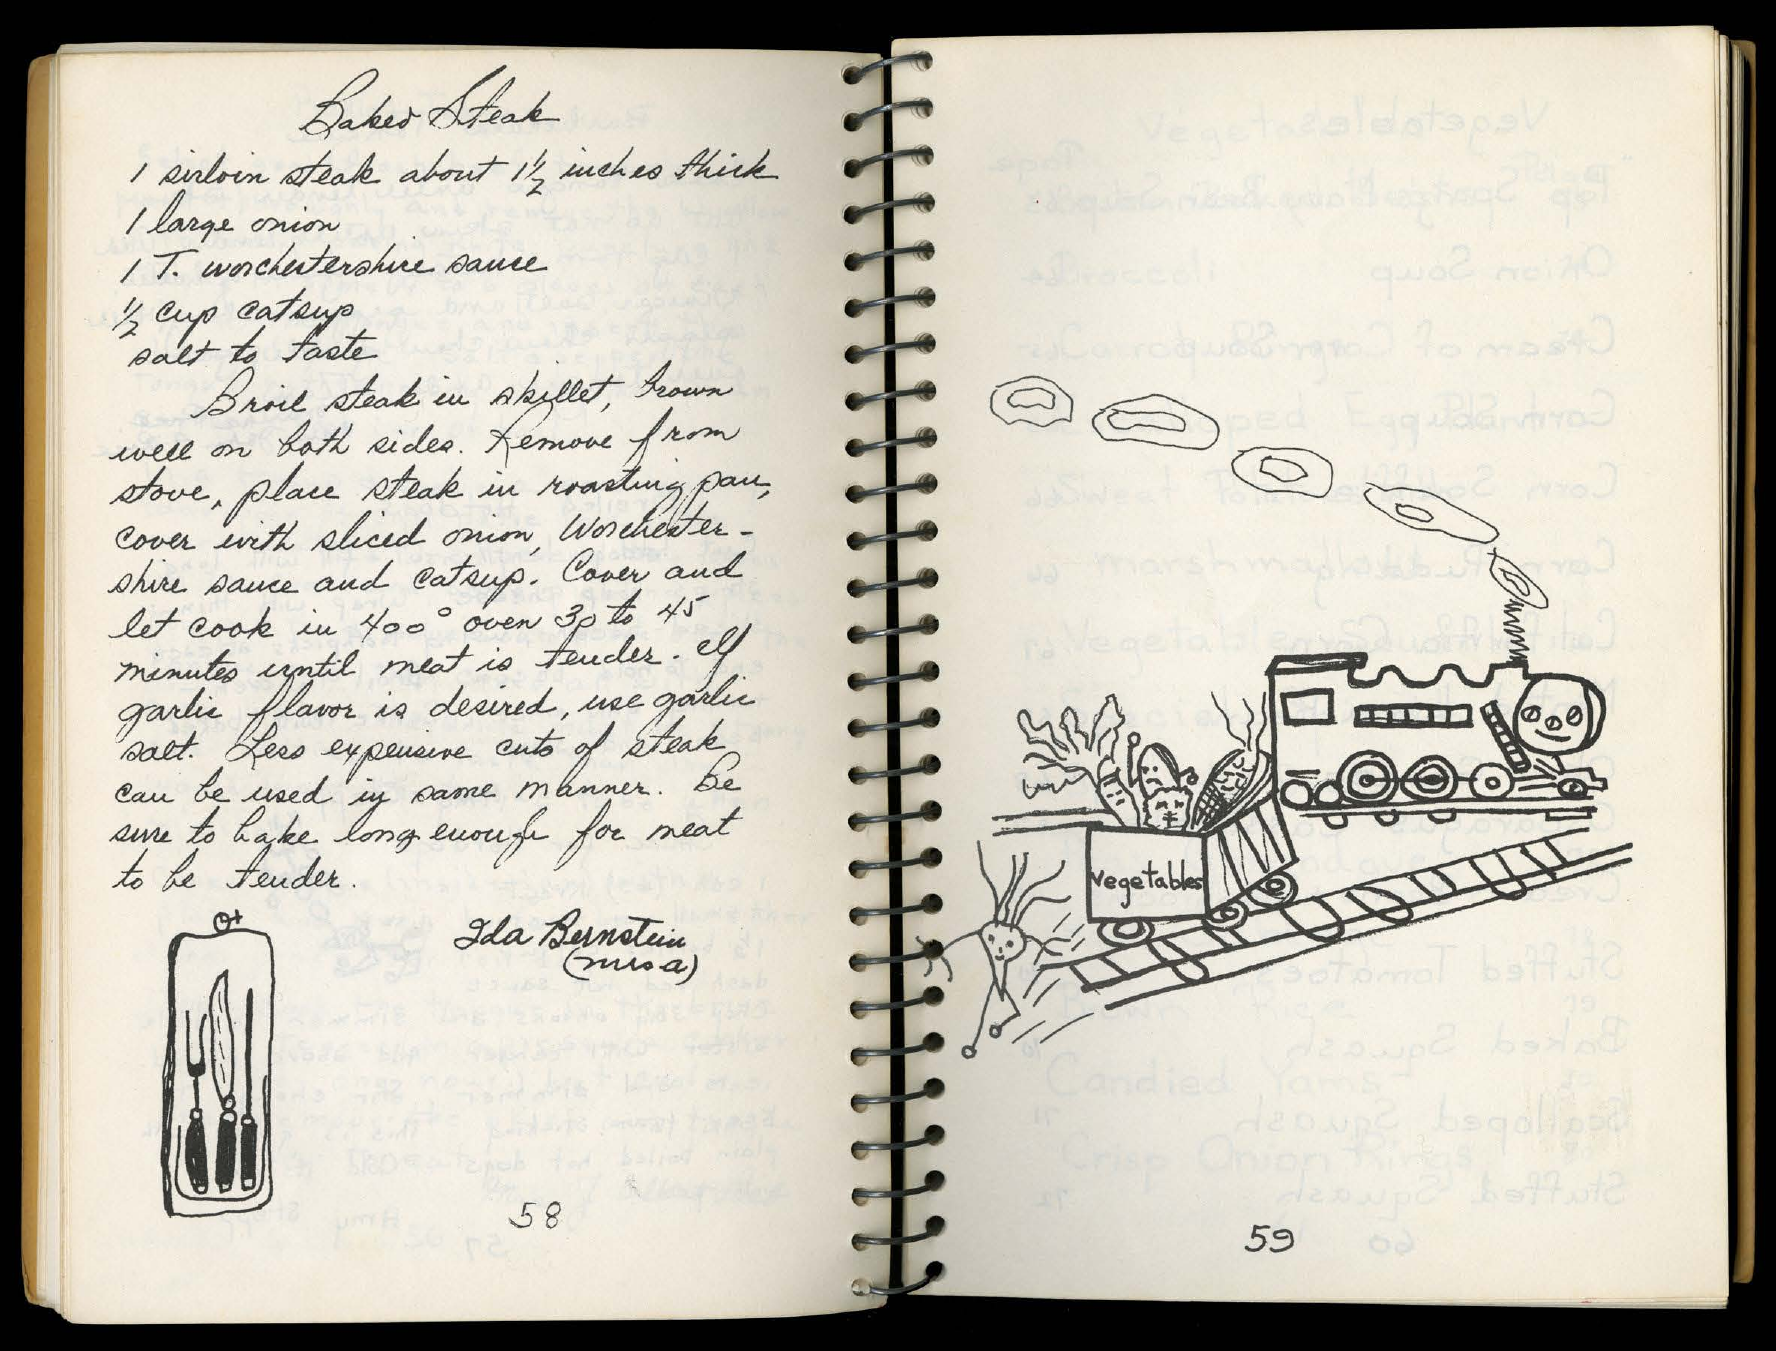 Baked Steak
1 sirloin steak about 1 1/2 inches thick
1 large onion
1 T. worchestershire sauce
1/2 cup catsup
salt to taste
Broil steak in skillet, brown
well on both sides. Remove from
stove, place steak in roasting pan,
cover with sliced onion, Worchester-
shire sauce and catsup. Cover and
let cook in 400° oven 30 to 45
minutes until meat is tender. If
garlic flavor is desired, use garlic
salt. Less expensive cuts of steak
can be used in same manner. Be
sure to bake long enough for meat
to be tender.
Ida Bernstein
58
Vegetables
59